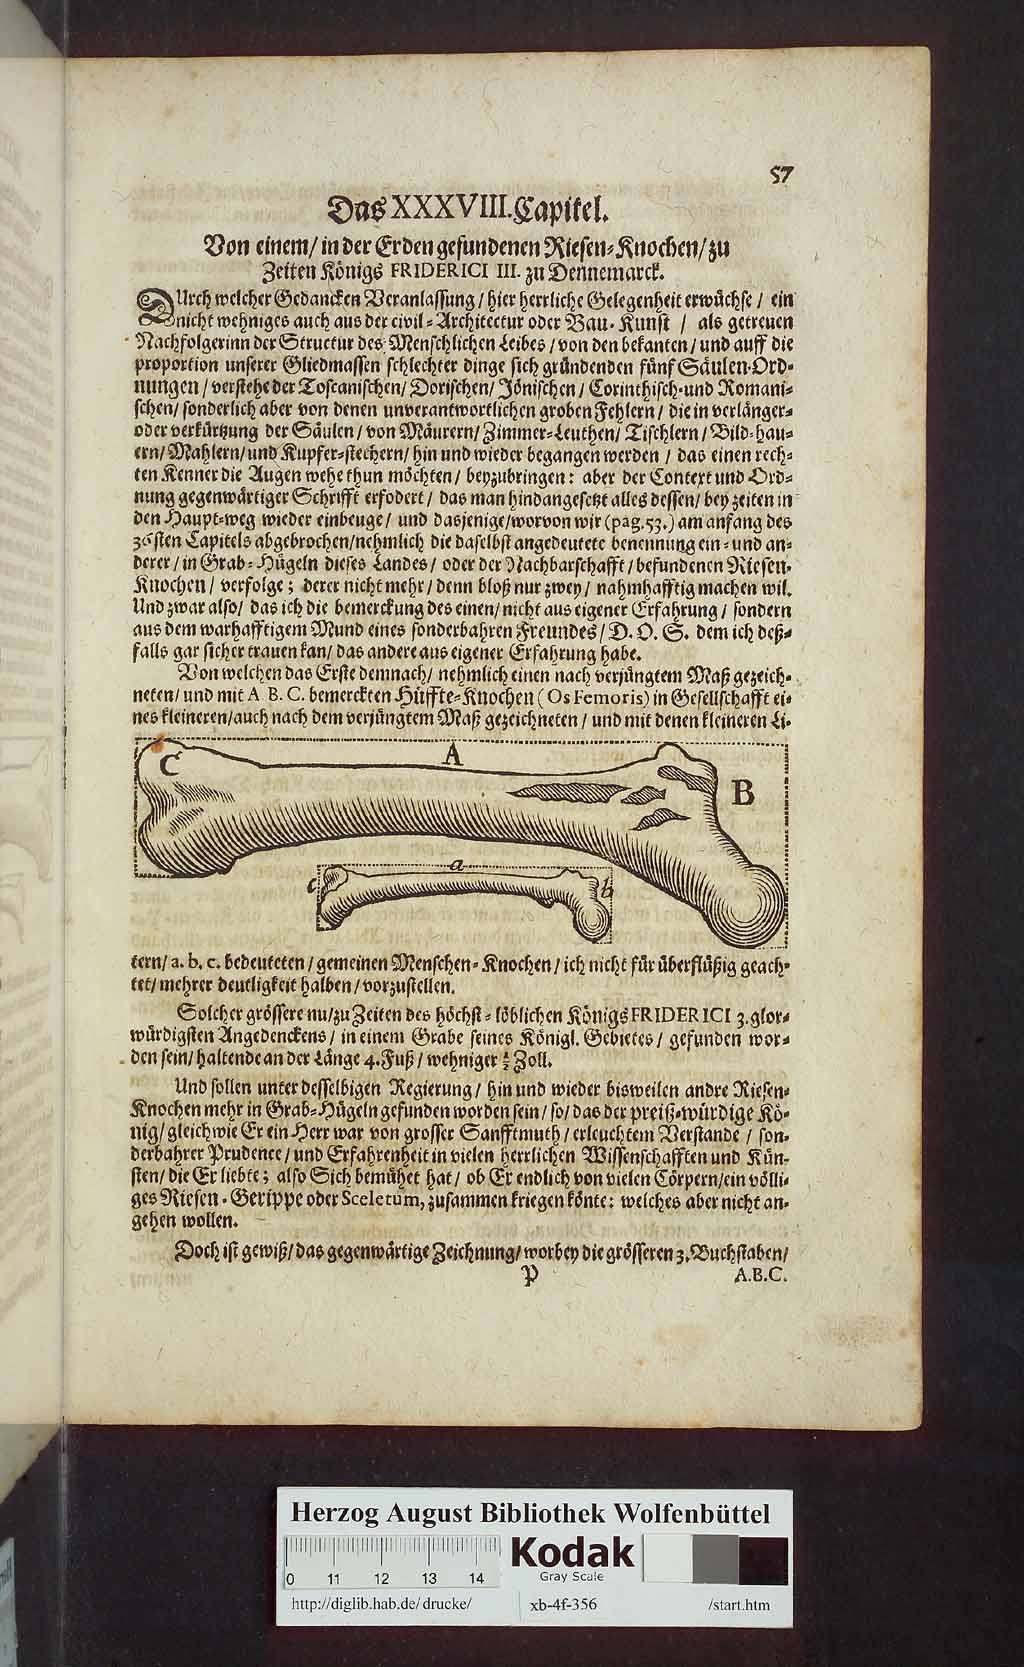 57
Das XXXVIII. Capitel.
Von einem/ in der Erden gefundenen Riesen-Knochen/ zu
Zeiten Königs FRIDERICI III. zu Dennemarck.
DUrch welcher Gedancken Veranlassung / hier herrliche Gelegenheit erwüchse / ein
nicht wehniges auch aus der civil-Architectur oder Bau-Kunst / als getreuen
Nachfolgerinn der Structur des Menschlichen Leibes / von den bekanten / und auff die
proportion unserer Gliedmassen schlechter dinge sich gründenden fünf Säulen-Ord-
nungen / verstehe der Toscanischen/ Dorischen/ Jönischen / Corinthisch-und Romani-
schen/ sonderlich aber von denen unverantwortlichen groben Fehlern / die in verlänger-
oder verkürtzung der Säulen / von Mäurern/ Zimmer-Leuthen/ Tischlern / Bild-hau-
ern/ Mahlern/ und Kupfer-stechern/ hin und wieder begangen werden / das einen rech-
ten Kenner die Augen wehe thun möchten / beyzubringen: aber der Context und Ord-
nung gegenwärtiger Schrifft erfodert / das man hindangesetzt alles dessen / bey zeiten in
den Haupt-weg wieder einbeuge / und dasjenige/worvon wir (pag. 53.) am anfang des
36sten Capitels abgebrochen/nehmlich die daselbst angedeutete benennung ein- und an-
derer / in Grab-Hügeln dieses Landes / oder der Nachbarschafft / befundenen Riesen-
Knochen / verfolge; derer nicht mehr / denn bloß nur zwey / nahmhafftig machen wil.
Und zwar also/ das ich die bemerckung des einen/ nicht aus eigener Erfahrung / sondern
aus dem warhafftigem Mund eines sonderbahren Freundes / D. O. S. dem ich deß-
falls gar sicher trauen kan/ das andere aus eigener Erfahrung habe.
Von welchen das Erste demnach/ nehmlich einen nach verjüngtem Maß gezeich-
neten/ und mit A B. C. bemerckten Hüffte-Knochen (Os Femoris) in Gesellschafft ei-
nes kleineren/auch nach dem verjüngtem Maß gezeichneten / und mit denen kleineren Li-
C A B
c a b
tern/ a. b. c. bedeuteten / gemeinen Menschen-Knochen / ich nicht für überflüßig geach-
tet/ mehrer deutligkeit halben / vorzustellen.
Solcher grössere nu/zu Zeiten des höchst-löblichen Königs FRIDERICI 3. glor-
würdigsten Angedenckens / in einem Grabe seines Königl. Gebietes / gefunden wor-
den sein/ haltende an der Länge 4. Fuß / wehniger ½ Zoll.
Und sollen unter desselbigen Regierung / hin und wieder bisweilen andre Riesen-
Knochen mehr in Grab-Hügeln gefunden worden sein / so/ das der preiß-würdige Kö-
nig/ gleichwie Er ein Herr war von grosser Sanfftmuth / erleuchtem Verstande / son-
derbahrer Prudence / und Erfahrenheit in vielen herrlichen Wissenschafften und Kün-
sten/ die Er liebte; also Sich bemühet hat / ob Er endlich von vielen Cörpern/ein völli-
ges Riesen-Gerippe oder Sceletum, zusammen kriegen könte: welches aber nicht an-
gehen wollen.
Doch ist gewiß/ das gegenwärtige Zeichnung/ worbey die grösseren 3. Buchstaben/
P A.B.C.
Herzog August Bibliothek Wolfenbüttel
0 11 12 13 14
Kodak
Gray Scale
http://diglib.hab.de/drucke/ xb-4f-356 /start.htm